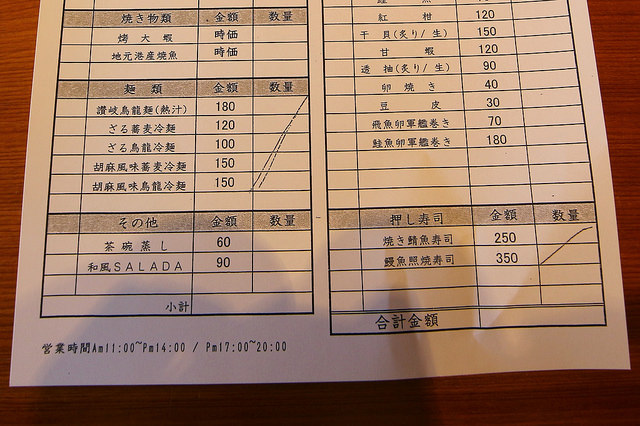 焼き物類 金額 数量
烤大蝦 時価
地元港産焼魚 時価
麺類 金額 数量
讚岐烏龍麺(熱汁) 180
ざる蕎麦冷麺 120
ざる烏龍冷麺 100
胡麻風味蕎麦冷麺 150
胡麻風味烏龍冷麺 150
その他 金額 数量
茶碗蒸し 60
和風SALADA 90
小計
紅柑 120
干貝(炙り/生) 150
甘蝦 120
透抽(炙り/生) 90
卵焼き 40
豆皮 30
飛魚卵軍艦巻き 70
鮭魚卵軍艦巻き 180
押し寿司 金額 数量
焼き鯖魚寿司 250
鰻魚照焼寿司 350
合計金額
営業時間Am11:00~Pm14:00 / Pm17:00~20:00